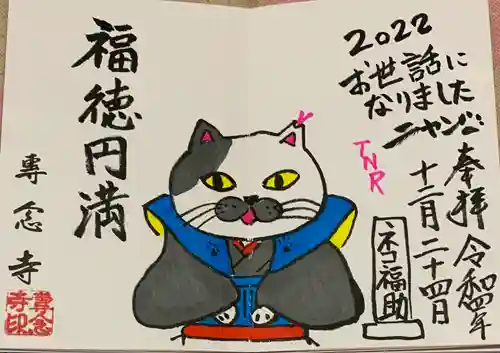 2022
お世話に
なりました
ニャンジ
TNR
奉拝 令和四年
十二月二十四日
ネコ福助
福徳円満
専念寺
専念
寺印